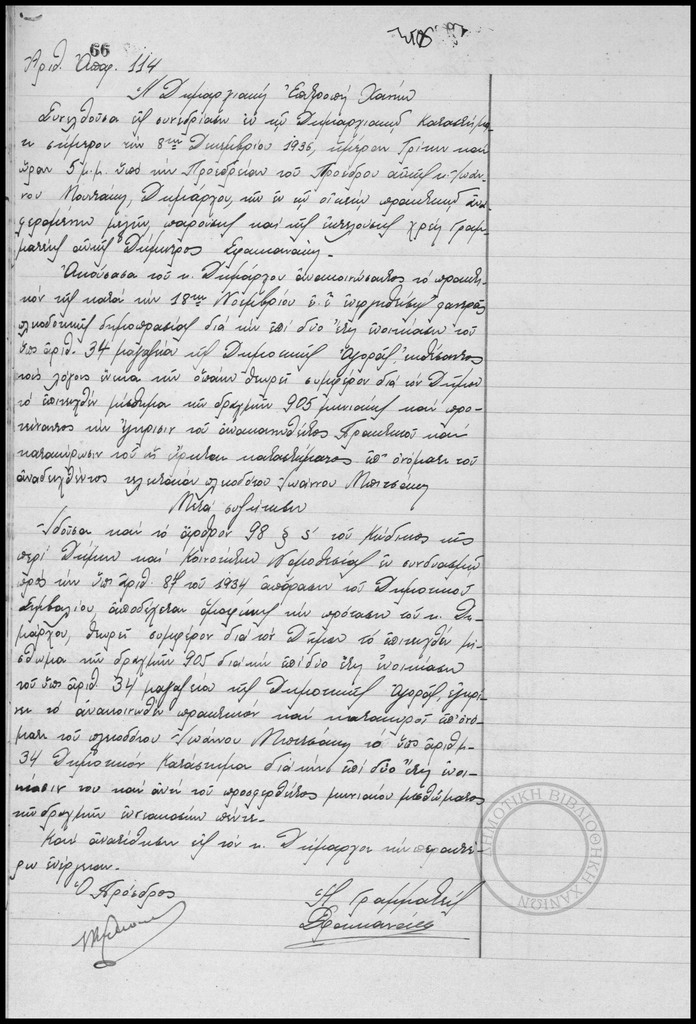 66
Ἀριθ. Ἀποφ. 114
Ἡ Δημαρχιακὴ Ἐπιτροπὴ Χανίων
Συνελθοῦσα εἰς συνεδρίασιν ἐν τῷ Δημαρχιακῷ Καταστήμα-
τι σήμερον τὴν 8ην Δεκεμβρίου 1936, ἡμέραν Τρίτην καὶ
ὥραν 5 μ.μ. ὑπὸ τὴν Προεδρείαν τοῦ Προέδρου αὐτῆς κ. Ἰωάν-
νου Μουντάκη, Δημάρχου, τῶν ἐν τῷ οἰκείῳ πρακτικῷ ἀνα-
φερομένων μελῶν, παρούσης καὶ τῆς ἐκτελούσης χρέη Γραμ-
ματέως αὐτῆς Δήμητρος Σφακιανάκη.
Ἀκούσασα τοῦ κ. Δημάρχου ἀνακοινώσαντος τὸ πρακτι-
κὸν τῆς κατὰ τὴν 18ην Νοεμβρίου ἐ.ἔ. ἐνεργηθείσης φανερᾶς
πλειοδοτικῆς δημοπρασίας διὰ τὴν ἐπὶ δύο ἔτη ἐνοικίασιν τοῦ
ὑπ' ἀριθ. 34 μαγαζείου τῆς Δημοτικῆς Ἀγορᾶς, ἐκθέσαντος
τοὺς λόγους ἕνεκα τῶν ὁποίων θεωρεῖ συμφέρον διὰ τὸν Δῆμον
τὸ ἐπιτευχθὲν μίσθωμα τῶν δραχμῶν 905 μηνιαίως καὶ προ-
τείναντος τὴν ἔγκρισιν τοῦ ἀνακοινωθέντος Πρακτικοῦ καὶ
κατακύρωσιν τοῦ ἐν αὐτῷ καταστήματος ἐπ' ὀνόματι τοῦ
ἀναδειχθέντος τελευταίου πλειοδότου Ἰωάννου Μπιτσάκη
Μετὰ συζήτησιν
Ἰδοῦσα καὶ τὸ ἄρθρον 98 § 5 τοῦ Κώδικος τῆς
περὶ Δήμων καὶ Κοινοτήτων Νομοθεσίας ἐν συνδυασμῷ
πρὸς τὴν ὑπ' ἀριθ. 87 τοῦ 1934 ἀπόφασιν τοῦ Δημοτικοῦ
Συμβουλίου, ἀποδέχεται ὁμοφώνως τὴν πρότασιν τοῦ κ. Δη-
μάρχου, θεωρεῖ συμφέρον διὰ τὸν Δῆμον τὸ ἐπιτευχθὲν μί-
σθωμα τῶν δραχμῶν 905 διὰ τὴν ἐπὶ δύο ἔτη ἐνοικίασιν
τοῦ ὑπ' ἀριθ. 34 μαγαζείου τῆς Δημοτικῆς Ἀγορᾶς, ἐγκρί-
νει τὸ ἀνακοινωθὲν πρακτικὸν καὶ κατακυροῖ ἐπ' ὀνό-
ματι τοῦ πλειοδότου Ἰωάννου Μπιτσάκη τὸ ὑπ' ἀριθμ.
34 Δημοτικὸν Κατάστημα διὰ τὴν ἐπὶ δύο ἔτη ἐνοι-
κίασίν του καὶ ἀντὶ τοῦ προσφερθέντος μηνιαίου μισθώματος
τῶν δραχμῶν ἐννεακοσίων πέντε.
Καὶ ἀνατίθησιν εἰς τὸν κ. Δήμαρχον τὴν περαιτέ-
ρω ἐνέργειαν.
Ὁ Πρόεδρος Ἡ Γραμματεὺς
Σφακιανάκη
ΔΗΜΟΤΙΚΗ ΒΙΒΛΙΟΘΗΚΗ ΧΑΝΙΩΝ